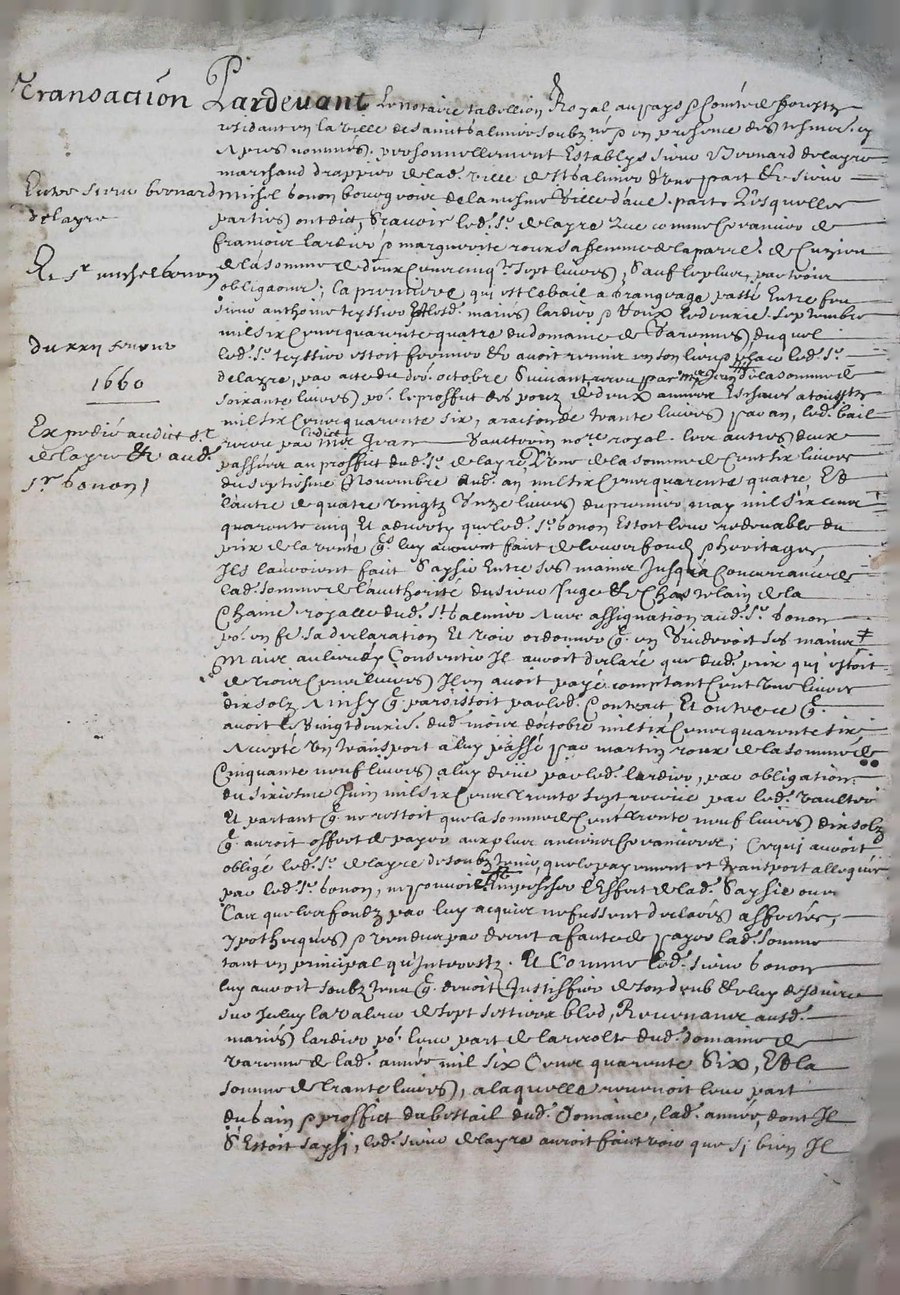 Transaction
Entre sieur bernard
delayre
Et Sr michel bonon
du xxij
1660
Expedié audict Sr
delayre & aud.
Sr bonon
Pardevant Le notaire tabellion Royal au pays & Comté de forestz
residant en la ville de Sainct balmier soubz né & en presence des tesmoings
Apres nommés, personnellement Establys sieur Bernard delayre
marchand drappier de lad. ville de St balmier d'une part & sieur
michel bonon bourgeois de la mesme ville d'autre part. Lesquelles
parties ont dict, Scavoir led. Sr delayre que comme creancier de
francois lardier & marguerite sa femme de la parr. de
de la somme de deux cens cinqte sept livres, Sauf le plus, par trois
obligaons; la premiere qui est le bail a passé Entre feu
sieur anthoine teyssier Et lesd. mariés lardier & Roux le septembre
mil six cens quarente quatre du domaine de Varennes, duquel
led. Sr teyssier estoit fermier & avoit remis en son lieu & place led. Sr
delayre, par acte du octobre Suivant receu par de la somme de
soixante livres po. le proffict des de deux années Escheues a toussts
mil six cens quarente six, a raison de trante livres par an, led. bail
receu par ledict Jean Vaultrin nore royal. les autres deux
passées au proffict dud. Sr delayre L'une de la somme de cent six livres
du septiesme Novembre aud. an mil six cens quarente quatre, Et
l'autre de quatre vingtz unze livres du premier may mil six cens
quarente cinq Et adverty que led. Sr bonon Estoit leur redevable du
prix de la vente q. luy avoient faict de leurs fondz & heritages,
Ils l'auroient faict Saysir Entre ses mains Jusqu'a Concurrance de
lad. somme de l'authorité du sieur Juge & Chastelain de la
royalle dud. St balmier Avec assignation aud. Sr bonon
po. en fe sa declaration Et voir ordonner q. en vuideroit ses mains
Mais au lieu d'y Consentir Il auroit declaré que dud. prix qui estoit
de trois Cens livres Il en avoit payé comptant Cent une livres
dix solz Ainsy q. paroissoit par led. Contract Et outre ce q.
avoit le vingt deuxie. dud. mois d'octobre mil six Cens quarente six
Accepté un transport a luy passé par martin roux de la somme de
Cinquante neuf livres a luy deue par led. lardier, par obligation
du sixiesme Juin mil six Cens trente sept receue par led. Vaultrin
Et partant q. ne restoit que la somme de Cent trente neuf livres dix solz
q. auroit offert de payer aux plus anciens Creanciers; Ce qui auroit
obligé led. Sr delayre de soubztenir, que le payement et transport allegués
par led. Sr bonon, ne pouvoit Empescher l'Effect de lad. Saysie
Car que les fondz par luy acquis ne fussent declarés affectés,
ypothecqués & vendus par decret a faute de payer lad. somme
tant en principal qu'Interestz. Et Comme led. sieur bonon
luy auroit soubztenu q. devoit Justiffier de son deub & luy desduire
sur Iceluy la valeur de sept settiers bled, Revenans ausd.
mariés lardier po. leur part de la recolte dud. domaine de
varenne de lad. année mil six Cens quarente Six, Et la
somme de trante livres, a laquelle revenoit leur part
du & proffict du bestail dud. Domaine, lad. année, dont Il
S'Estoit saysi, led. sieur delayre auroit faict voir que si bien Il